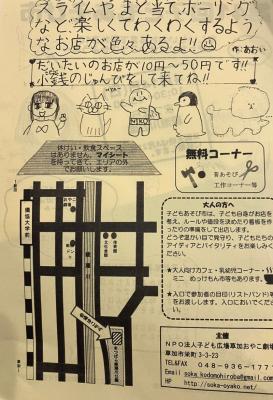 スライムや、まと当て、ボーリング
など、楽しくてわくわくするよう
なお店が色々あるよ!!
作:あおい
だいたいのお店が10円〜50円です!!
小銭のじゅんびをして来てね!!
休けい・飲食スペース
はありません。マイシート
を持ってきて、エリアの外
でお願いします。
無料コーナー
昔あそび
工作コーナー等
獨協大学前
綾瀬川
大人の方へ
子どもあそび市は、子ども自身がお店を
考え、ルールや値段を決めたり看板を作
ったりの準備をして出店します。
どうぞ温かい目で見守り、子どもたちの
アイディアとバイタリティをお楽しみく
ださい。
★大人向けカフェ・乳幼児コーナー・
ミニ めっけもん市等もあります。
★入口で参加者の目印(リストバンド)
をお渡しします。入口においでくださ
い。
主催
NPO法人子ども広場草加おやこ劇場
草加市栄町3-3-23
TEL/FAX 048-936-177
Email soka_kodomohiroba@gmail.c
HP http://soka-oyako.net/